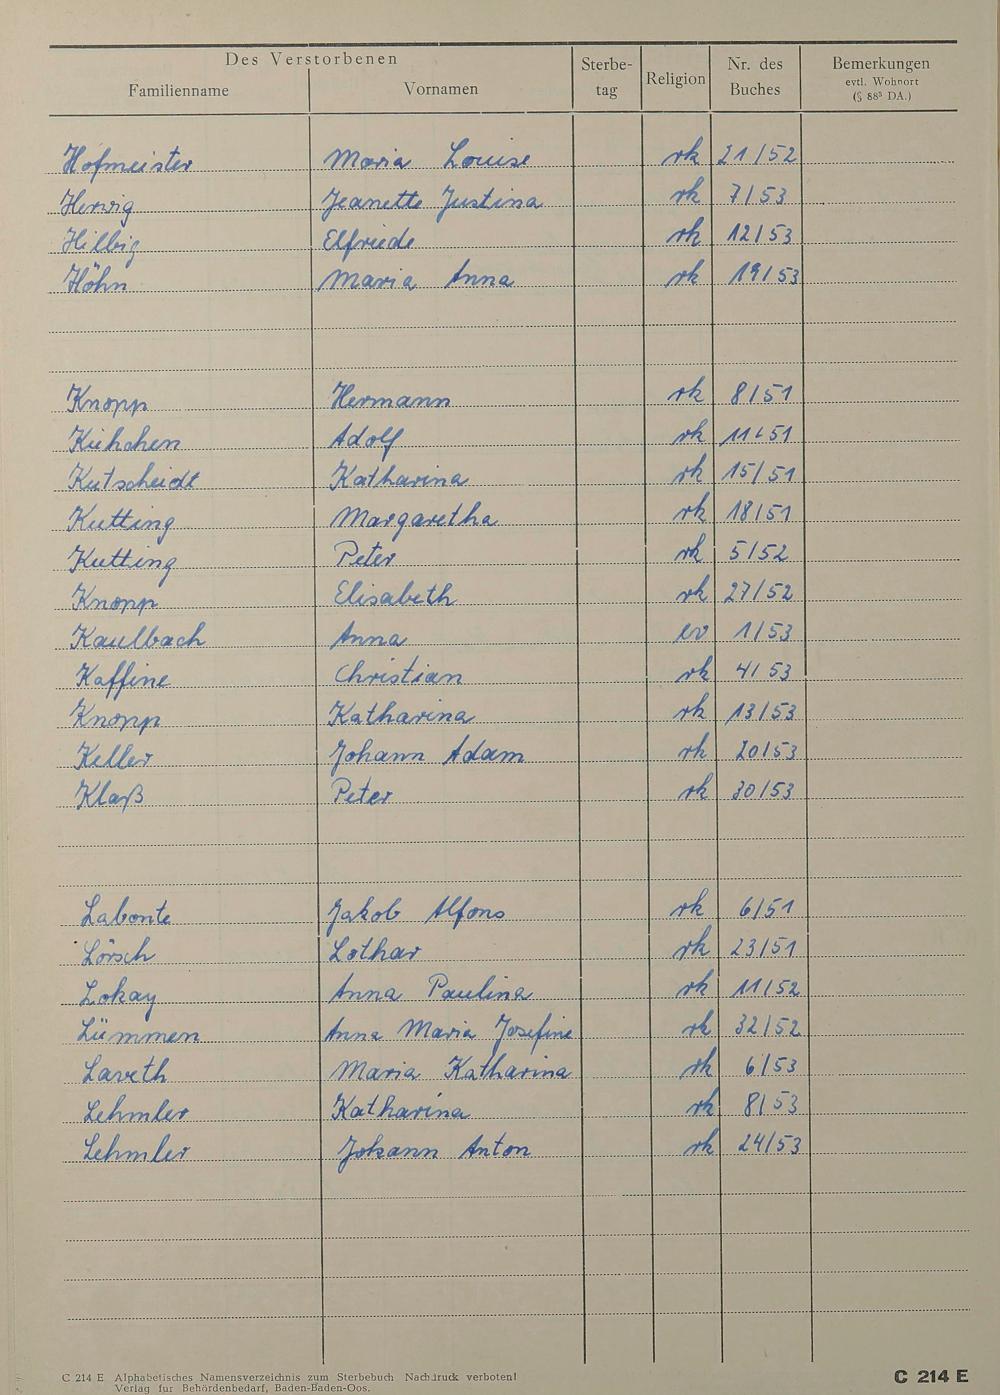 Des Verstorbenen
Familienname Vornamen Sterbe-tag Religion Nr. des Buches Bemerkungen evtl. Wohnort (§ 88⁵ DA.)
Hofmeister Maria Louise rk 21/52
Herwig Jeanette Justina rk 7/53
Hilbig Elfriede rk 12/53
Höhn Maria Anna rk 19/53
Knopp Hermann rk 8/51
Kühchen Adolf rk 11/51
Kutscheidt Katharina rk 15/51
Kutting Margaretha rk 18/51
Kutting Peter rk 5/52
Knopp Elisabeth rk 27/52
Kaulbach Anna ev 1/53
Kaffine Christian rk 4/53
Knopp Katharina rk 13/53
Keller Johann Adam rk 20/53
Klaß Peter rk 30/53
Labonte Jakob Alfons rk 6/51
Lörsch Lothar rk 23/51
Lokay Anna Paulina rk 11/52
Lümmen Anna Maria Josefine rk 32/52
Laveth Maria Katharina rk 6/53
Lehmler Katharina rk 8/53
Lehmler Johann Anton rk 24/53
C 214 E Alphabetisches Namensverzeichnis zum Sterbebuch Nachdruck verboten!
Verlag für Behördenbedarf, Baden-Baden-Oos.
C 214 E